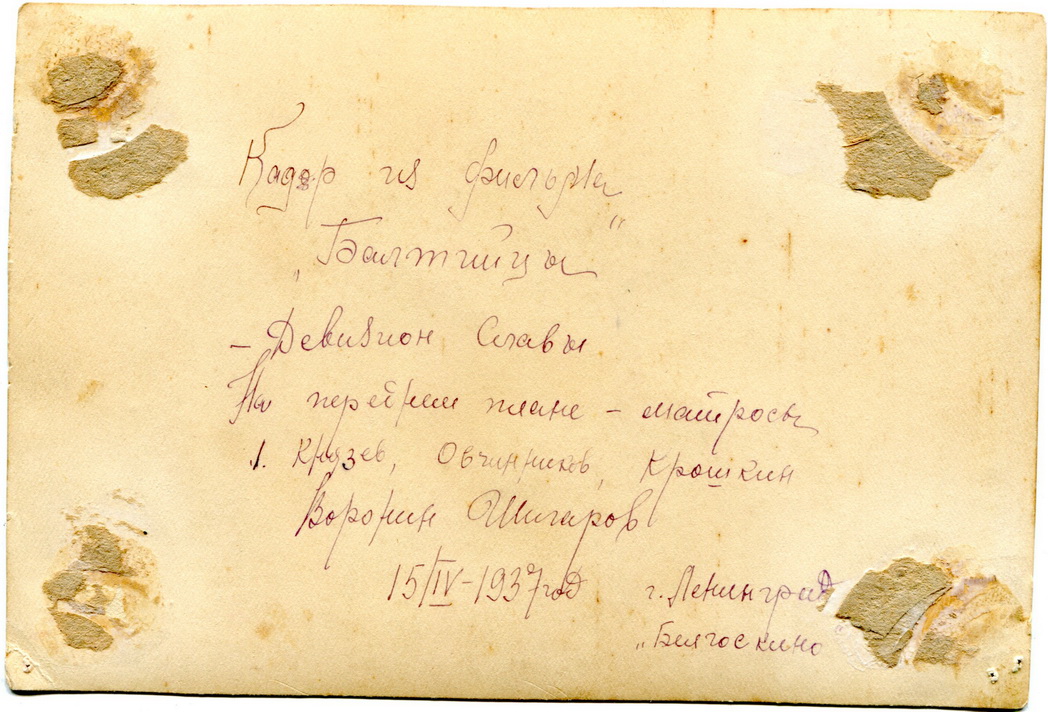 Кадр из фильма
„Балтийцы"
– Девизион Славы
На переднем плане – матросы
1. Князев, Овчинников, Крошкин
Воронин Шигаров
15/IV-1937 год г. Ленинград
„Белгоскино